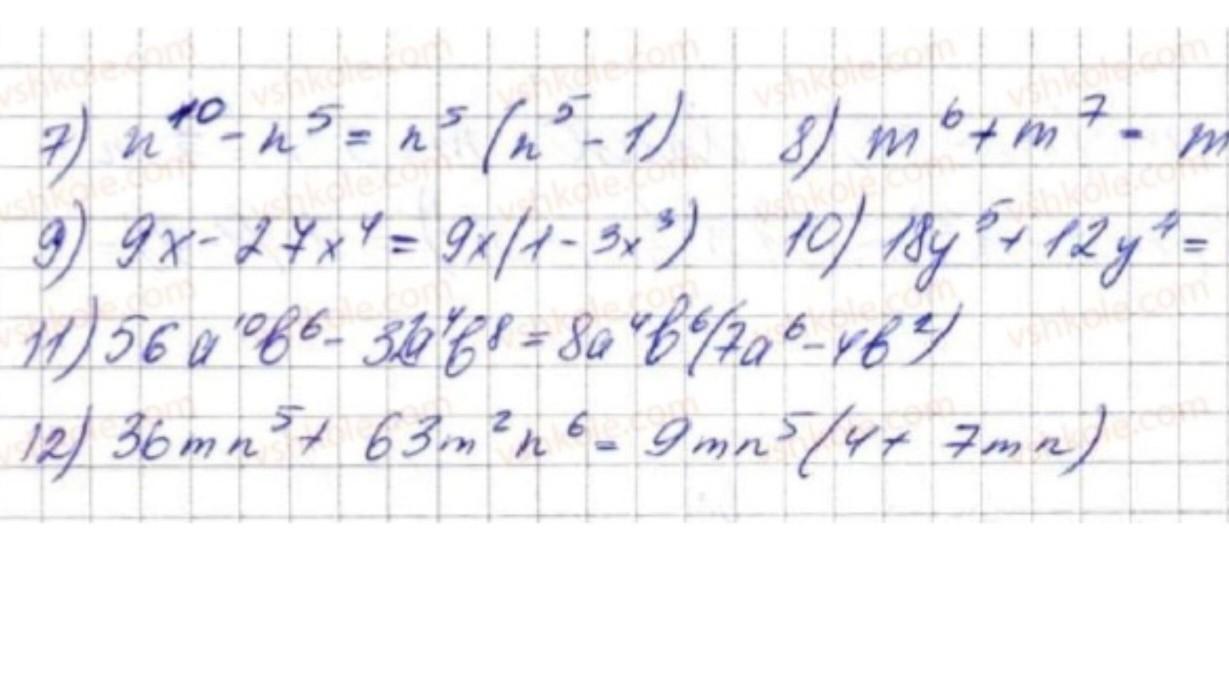 7) n¹⁰ - n⁵ = n⁵ (n⁵ - 1) 8) m⁶ + m⁷ = m
9) 9x - 27x⁴ = 9x(1 - 3x³) 10) 18y⁵ + 12y⁴ =
11) 56a¹⁰b⁶ - 32a⁴b⁸ = 8a⁴b⁶(7a⁶ - 4b²)
12) 36mn⁵ + 63m²n⁶ = 9mn⁵(4 + 7mn)
vshkole.com